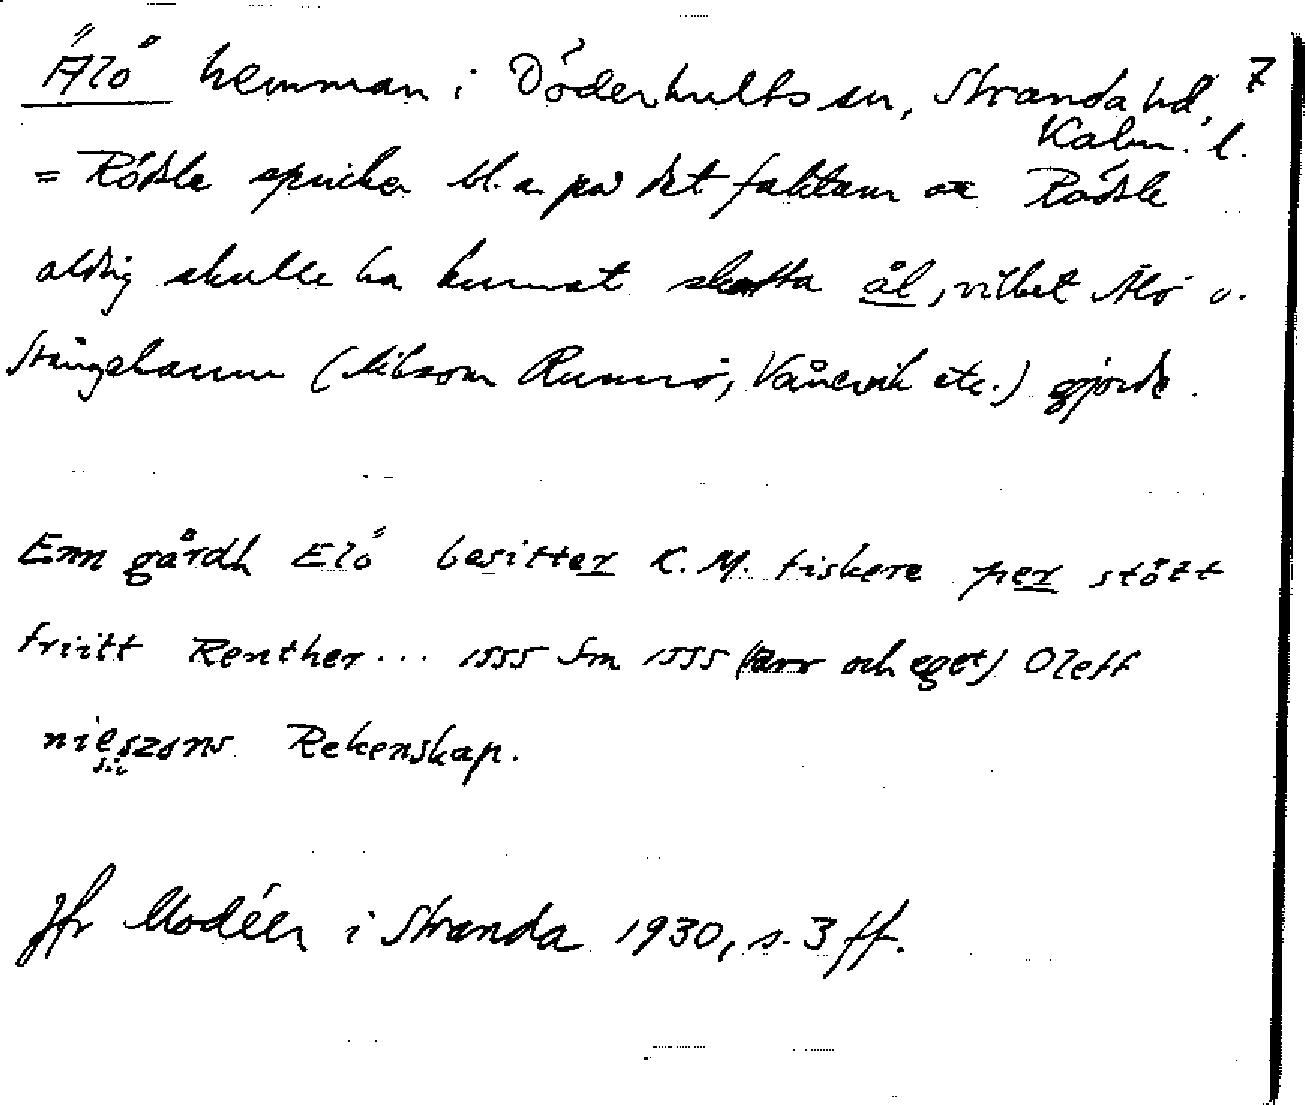 Älö hemman i Döderhults sn, Stranda hd, 7
Kalm. l.
= Rödsle spricker bl. a. på det faktum att Rödsle
aldrig skulle ha kunnat skatta ål, vilket Älö o.
Stångehamn (liksom Runnö, Vånevik etc.) gjorde.
Enn gårdh Elö besitter K. M. fiskere per stött
friitt Renther... 1555 Sm 1555 ( och eget) Oleff
nielszons Rekenskap.
sic
Jfr Modéer i Stranda 1930, s. 3 ff.